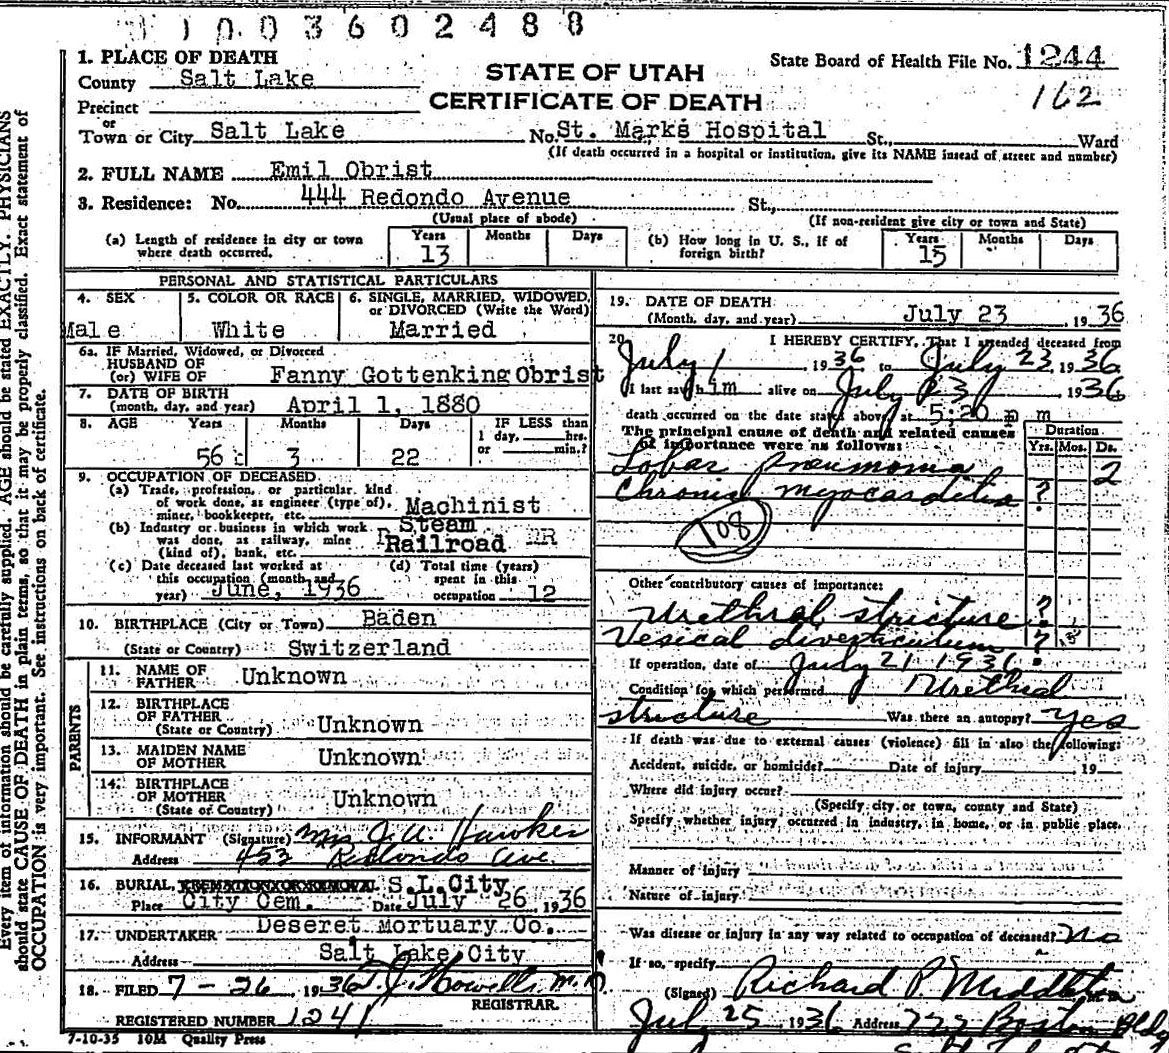 1003602488
1. PLACE OF DEATH
County Salt Lake
Precinct
or
Town or City Salt Lake
STATE OF UTAH
CERTIFICATE OF DEATH
State Board of Health File No. 1244
162
No. St. Marks Hospital St., Ward
(If death occurred in a hospital or institution, give its NAME instead of street and number)
2. FULL NAME Emil Obrist
3. Residence: No. 444 Redondo Avenue St.,
(Usual place of abode) (If non-resident give city or town and State)
(a) Length of residence in city or town where death occurred. Years 13 Months Days
(b) How long in U. S., if of foreign birth? Years 15 Months Days
PERSONAL AND STATISTICAL PARTICULARS
4. SEX Male
5. COLOR OR RACE White
6. SINGLE, MARRIED, WIDOWED, or DIVORCED (Write the Word) Married
6a. IF Married, Widowed, or Divorced
HUSBAND OF
(or) WIFE OF Fanny Gottenking Obrist
7. DATE OF BIRTH
(month, day, and year) April 1, 1880
8. AGE Years 56 Months 3 Days 22 IF LESS than 1 day, hrs. or min.?
9. OCCUPATION OF DECEASED
(a) Trade, profession, or particular kind of work done, as engineer (type of), miner, bookkeeper, etc. Machinist
(b) Industry or business in which work was done, as railway, mine (kind of), bank, etc. Steam Railroad RR
(c) Date deceased last worked at this occupation (month and year) June, 1936
(d) Total time (years) spent in this occupation 12
10. BIRTHPLACE (City or Town) Baden
(State or Country) Switzerland
PARENTS
11. NAME OF FATHER Unknown
12. BIRTHPLACE OF FATHER (State or Country) Unknown
13. MAIDEN NAME OF MOTHER Unknown
14. BIRTHPLACE OF MOTHER (State or Country) Unknown
15. INFORMANT (Signature) Mrs J. A. Hawker
Address 453 Redondo Ave.
16. BURIAL, S.L.City
Place City Cem. Date July 26, 1936
17. UNDERTAKER Deseret Mortuary Co.
Address Salt Lake City
18. FILED 7-26, 1936 T. J. Howells M.D.
REGISTRAR.
REGISTERED NUMBER 1241
7-10-35 10M Quality Press
19. DATE OF DEATH
(Month, day, and year) July 23, 1936
20. I HEREBY CERTIFY, That I attended deceased from
July 1, 1936 to July 23, 1936
I last saw him alive on July 23, 1936
death occurred on the date stated above at 5:20 p m
The principal cause of death and related causes of importance were as follows:
Duration
Yrs. Mos. Ds.
Lobar pneumonia 2
Chronic myocarditis ?
108
Other contributory causes of importance:
Urethral stricture ?
Vesical diverticulum ?
If operation, date of July 21 1936
Condition for which performed Urethral
stricture Was there an autopsy? yes
If death was due to external causes (violence) fill in also the following:
Accident, suicide, or homicide? Date of injury , 19
Where did injury occur?
(Specify city or town, county and State)
Specify whether injury occurred in industry, in home, or in public place.
Manner of injury
Nature of injury
Was disease or injury in any way related to occupation of deceased? No
If so, specify
(Signed) Richard P. Middleton M.D.
July 25, 1936 Address 722 Boston Bldg
Every item of information should be carefully supplied. AGE should be stated EXACTLY. PHYSICIANS
should state CAUSE OF DEATH in plain terms, so that it may be properly classified. Exact statement of
OCCUPATION is very important. See instructions on back of certificate.